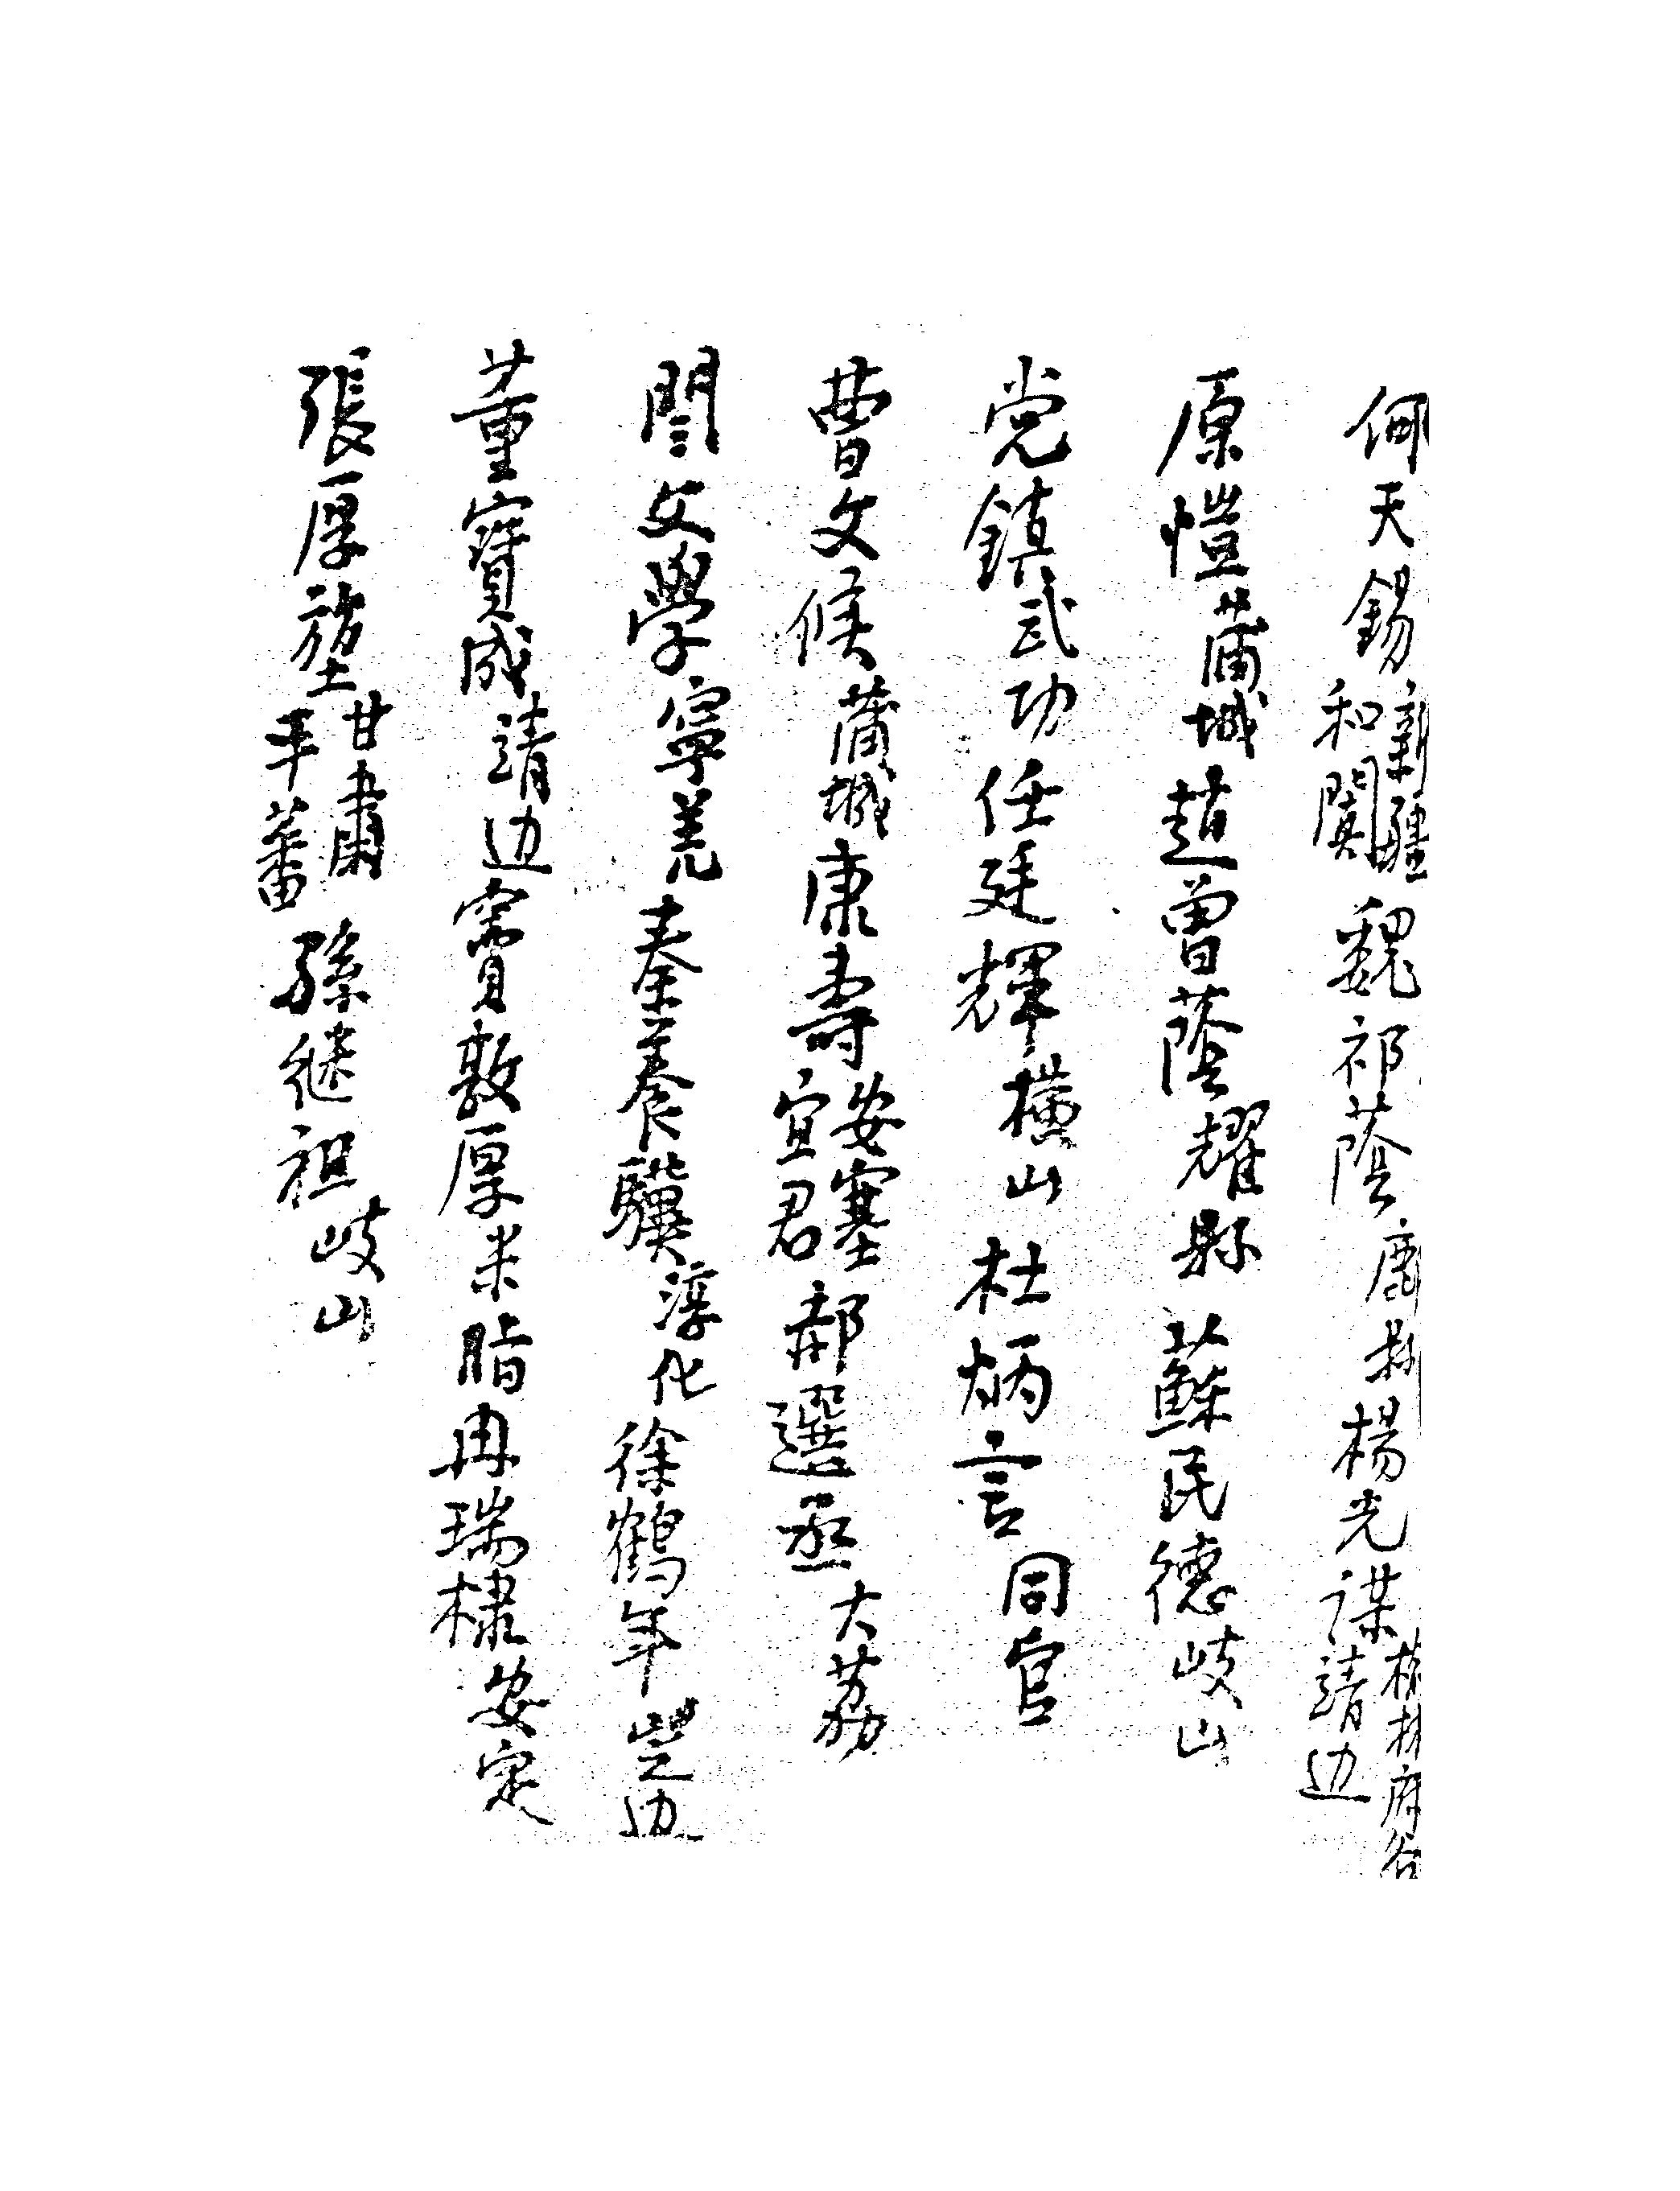 何天錫 新疆 和闐 魏祁蔭 鄜縣 楊光謀 榆林府谷 靖边
原愷 蒲城 趙曾蔭 耀縣 蘇民德 岐山
党鎮 武功 任廷輝 橫山 杜炳言 同官
曹文候 蒲城 康壽 安塞 宜君 郝選丞 大荔
閆文學 寧羌 秦養驥 淳化 徐鶴年 定边
董寶成 靖边 竇敦厚 米脂 冉瑞棣 安定
張厚 甘肅 平番 孫继祖 岐山